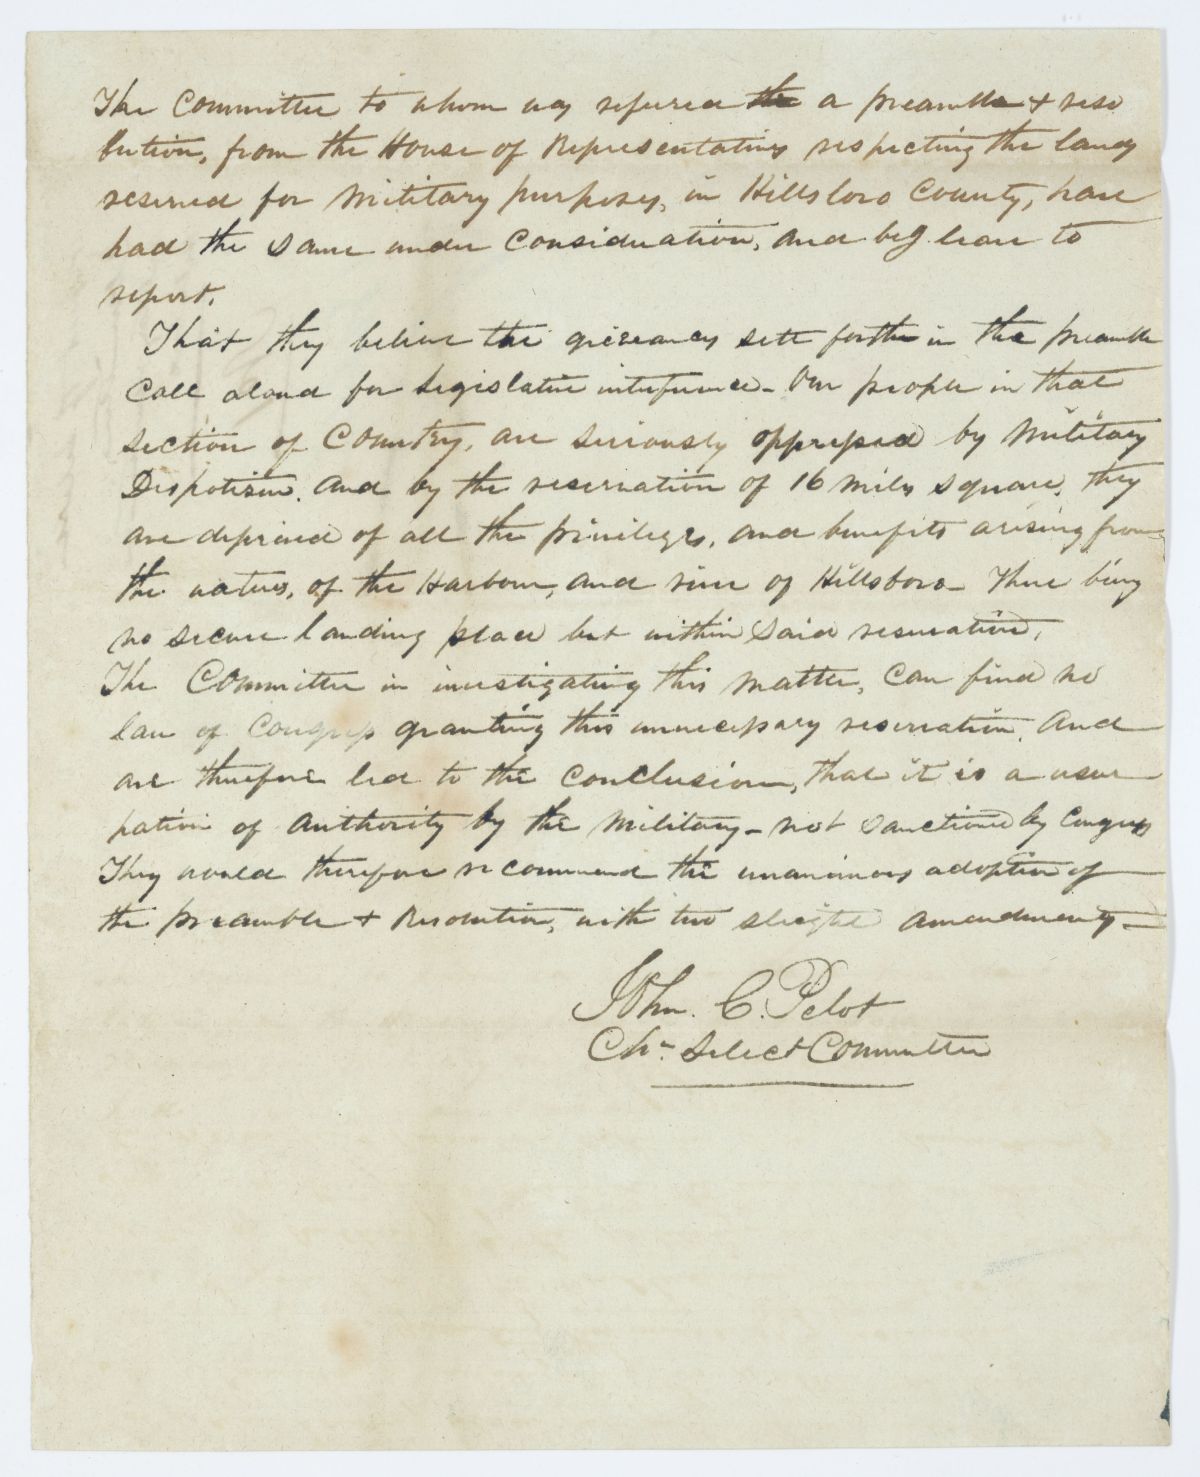 The Committee to whom was refered the a preamble & reso
lution, from the House of Representatives respecting the lands
reserved for Military purposes, in Hillsboro County, have
had the same under consideration, and beg leave to
report.
That they believe the grievances sett forth in the preamble
call aloud for Legislative interference - Our people in that
section of Country, are seriously oppressed by Military
Dispotism. and by the reservation of 16 miles square, they
are deprived of all the privileges, and benefits arising from
the waters, of the Harbour, and river of Hillsboro - There being
no secure landing place but within said reservation,
The Committee in investigating this matter, can find no
law of Congress granting this unnecessary reservation, and
are therefore led to the conclusion, that it is a usur
pation of authority by the Military - not sanctioned by Congress
They would therefore recommend the unanimous adoption of
the preamble & Resolution, with two sleight amendments -
John. C. Pelot
Chn. Select Committee